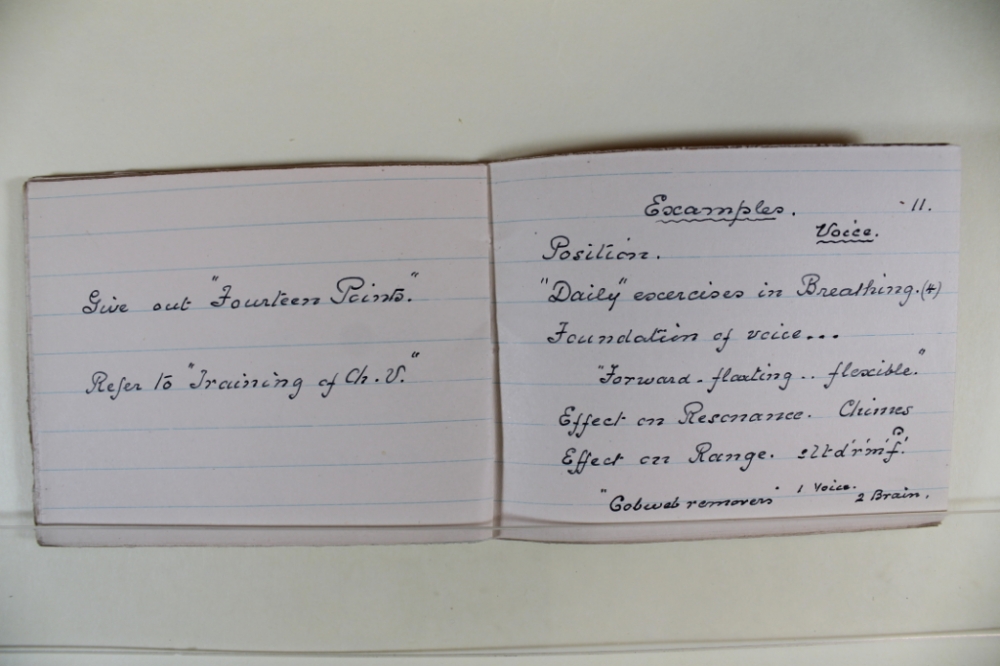 Give out "Fourteen Points."
Refer to "Training of Ch. V."
Examples. 11.
Voice.
Position.
"Daily" excercises in Breathing. (4)
Foundation of voice...
"Forward - floating .. flexible."
Effect on Resonance. Chimes
Effect on Range.
"Cobweb removers" 1 Voice. 2 Brain.